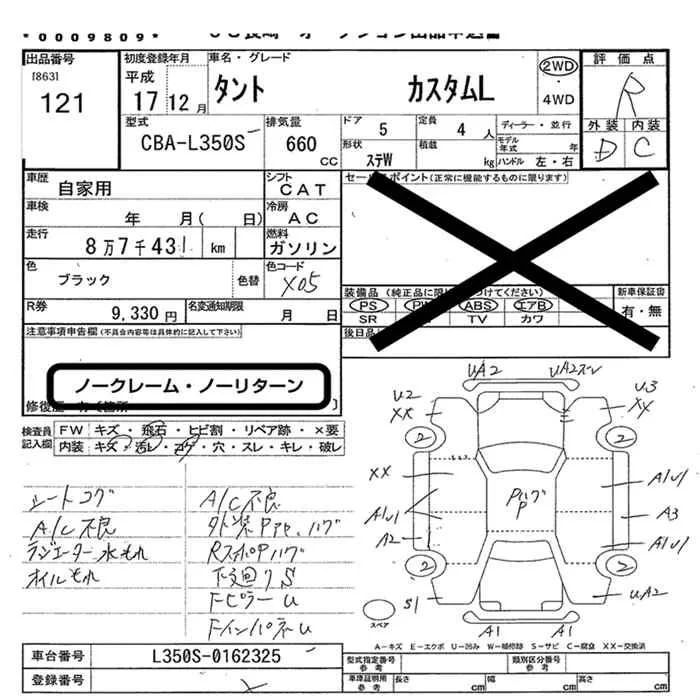 *0009809*
出品番号 初度登録年月 車名・グレード 2WD 評価点
[863] 平成 タント カスタムL ・ R
121 17 12月 4WD
型式 排気量 ドア 5 定員 4人 ディーラー・並行 外装 内装
CBA-L350S 660 CC 形状 ステW 積載 kg モデル年式 年 D C
ハンドル 左・右
車歴 自家用 シフト CAT セールスポイント(正常に機能するものに限ります)
車検 年 月( 日) 冷房 AC
走行 8万7千431 km 燃料 ガソリン
色 ブラック 色替 色コード X05
装備品 新車保証書
R券 9,330円 名変通知期限 月 日 PS ABS エアB 有・無
SR TV カワ
注意事項申告欄(不具合内容等は具体的に記入して下さい) 後日品
ノークレーム・ノーリターン
検査員 FW キズ・飛石・ヒビ割・リペア跡・×要
記入欄 内装 キズ・汚レ・コゲ・穴・スレ・キレ・破レ
シートコゲ A/C不良
A/C不良 外装Pアセ、ハゲ
ラジエーター水もれ RスポPハゲ
オイルもれ 下廻りS
FピラーU
FインパネU
UA2 UA2スレ
U2 U3
XX XX
2 2
XX A1U1
Pハゲ
P
A1U1 A3
A2 A1U1
2 2
S1 UA2
A1 A1
スペア
A-キズ E-エクボ U-凹み W-補修跡 S-サビ C-腐食 XX-交換済
車台番号 L350S-0162325 型式指定番号 参考 類別区分番号 参考
登録番号 車庫証明用 参考 長さ cm 幅 cm 高さ cm